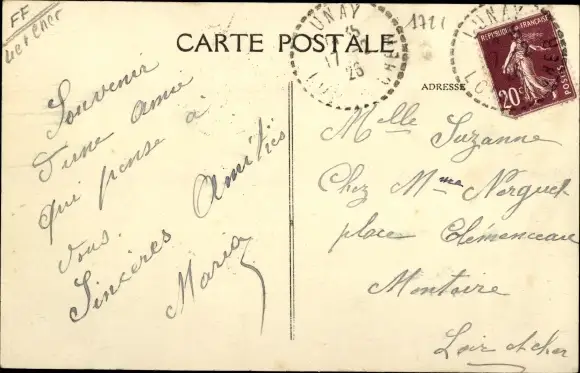 FF
Loir et Cher
1721
CARTE POSTALE
ADRESSE
LUNAY
17
26
CHER
LUNAY
CHER
REPUBLIQUE FRANÇAISE
20c
POSTES
Souvenir
d'une amie
qui pense à
vous.
Sincères Amitiés
Maria
Melle Suzanne
Chez Mme Norguet
place Clémenceau
Montoire
Loir et cher